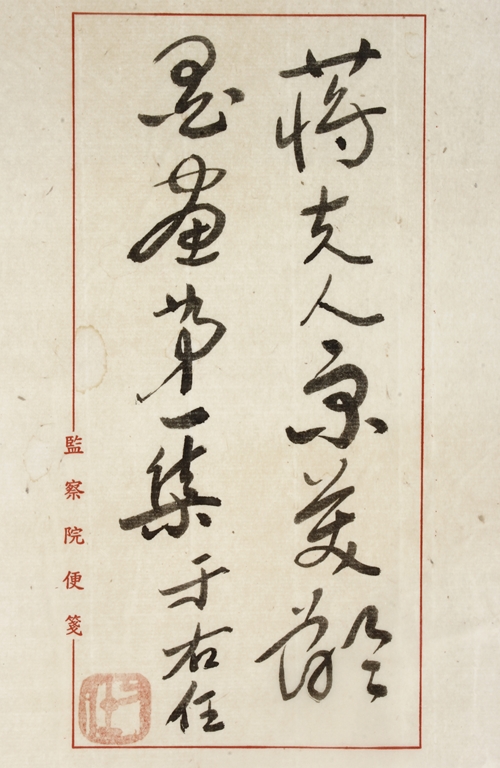 蔣夫人宋美齡
墨畫第一集 于右任
監察院便箋